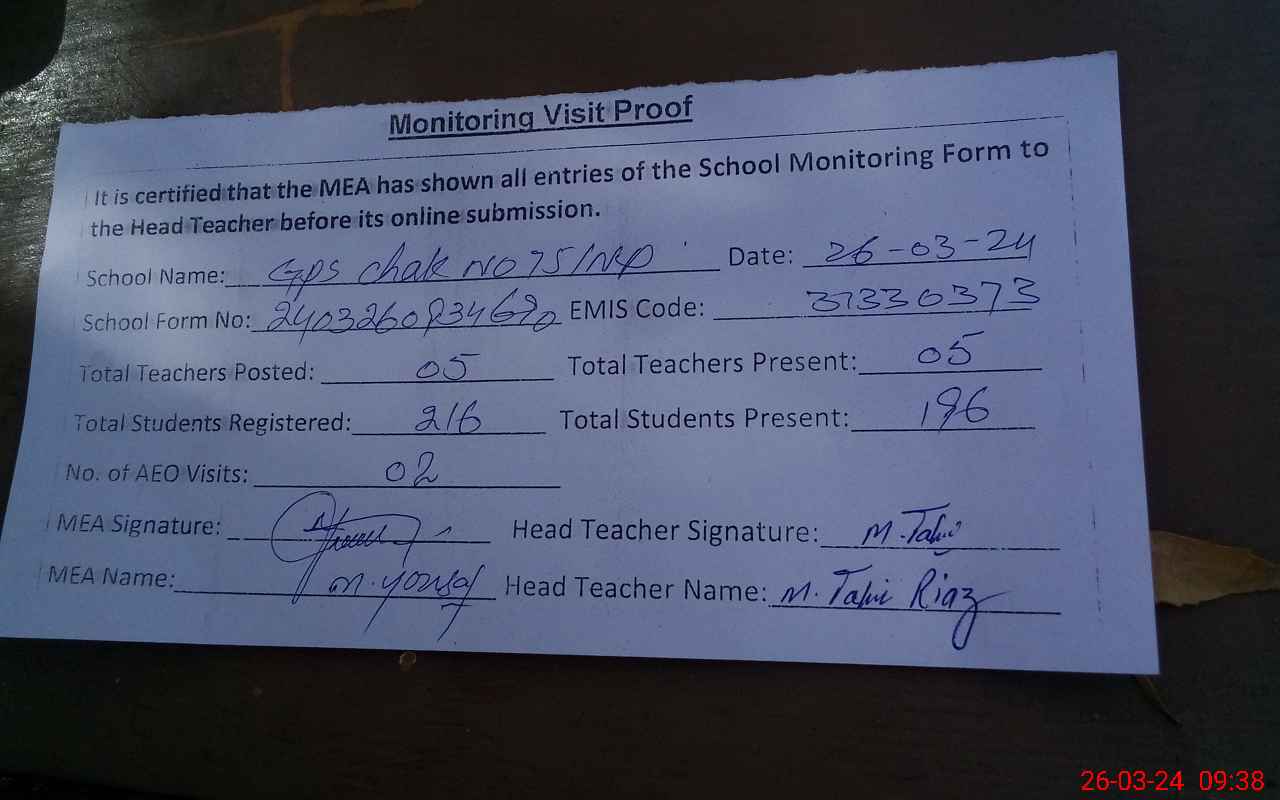 Monitoring Visit Proof
It is certified that the MEA has shown all entries of the School Monitoring Form to
the Head Teacher before its online submission.
School Name: GPS chak NO 75/NP Date: 26-03-24
School Form No: EMIS Code: 31330373
Total Teachers Posted: 05 Total Teachers Present: 05
Total Students Registered: 216 Total Students Present: 196
No. of AEO Visits: 02
MEA Signature: Head Teacher Signature: M. Tahir
MEA Name: M. Yousaf Head Teacher Name: M. Tahir Riaz
26-03-24 09:38